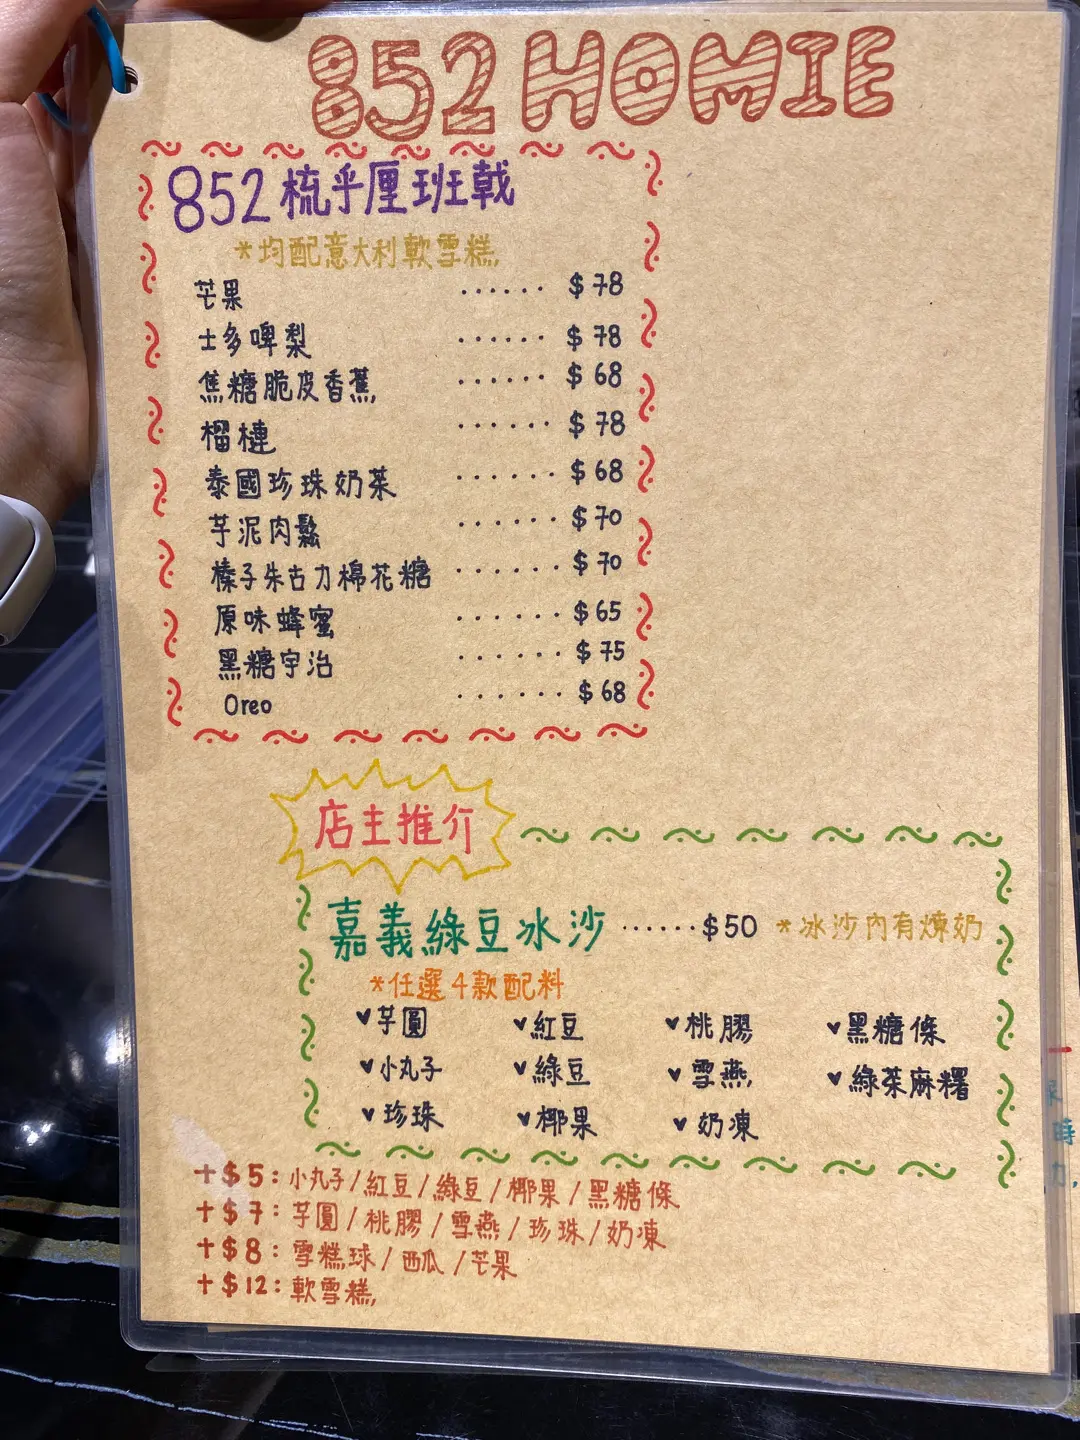 852 HOMIE
852 梳乎厘班戟
*均配意大利軟雪糕
芒果 ...... $78
士多啤梨 ...... $78
焦糖脆皮香蕉 ...... $68
榴槤 ...... $78
泰國珍珠奶茶 ...... $68
芋泥肉鬆 ...... $70
榛子朱古力棉花糖 ...... $70
原味蜂蜜 ...... $65
黑糖宇治 ...... $75
Oreo ...... $68
店主推介
嘉義綠豆冰沙 ......$50 *冰沙內有煉奶
*任選4款配料
♥芋圓 ♥紅豆 ♥桃膠 ♥黑糖條
♥小丸子 ♥綠豆 ♥雪燕 ♥綠茶麻糬
♥珍珠 ♥椰果 ♥奶凍
+$5:小丸子/紅豆/綠豆/椰果/黑糖條
+$7:芋圓/桃膠/雪燕/珍珠/奶凍
+$8:雪糕球/西瓜/芒果
+$12:軟雪糕